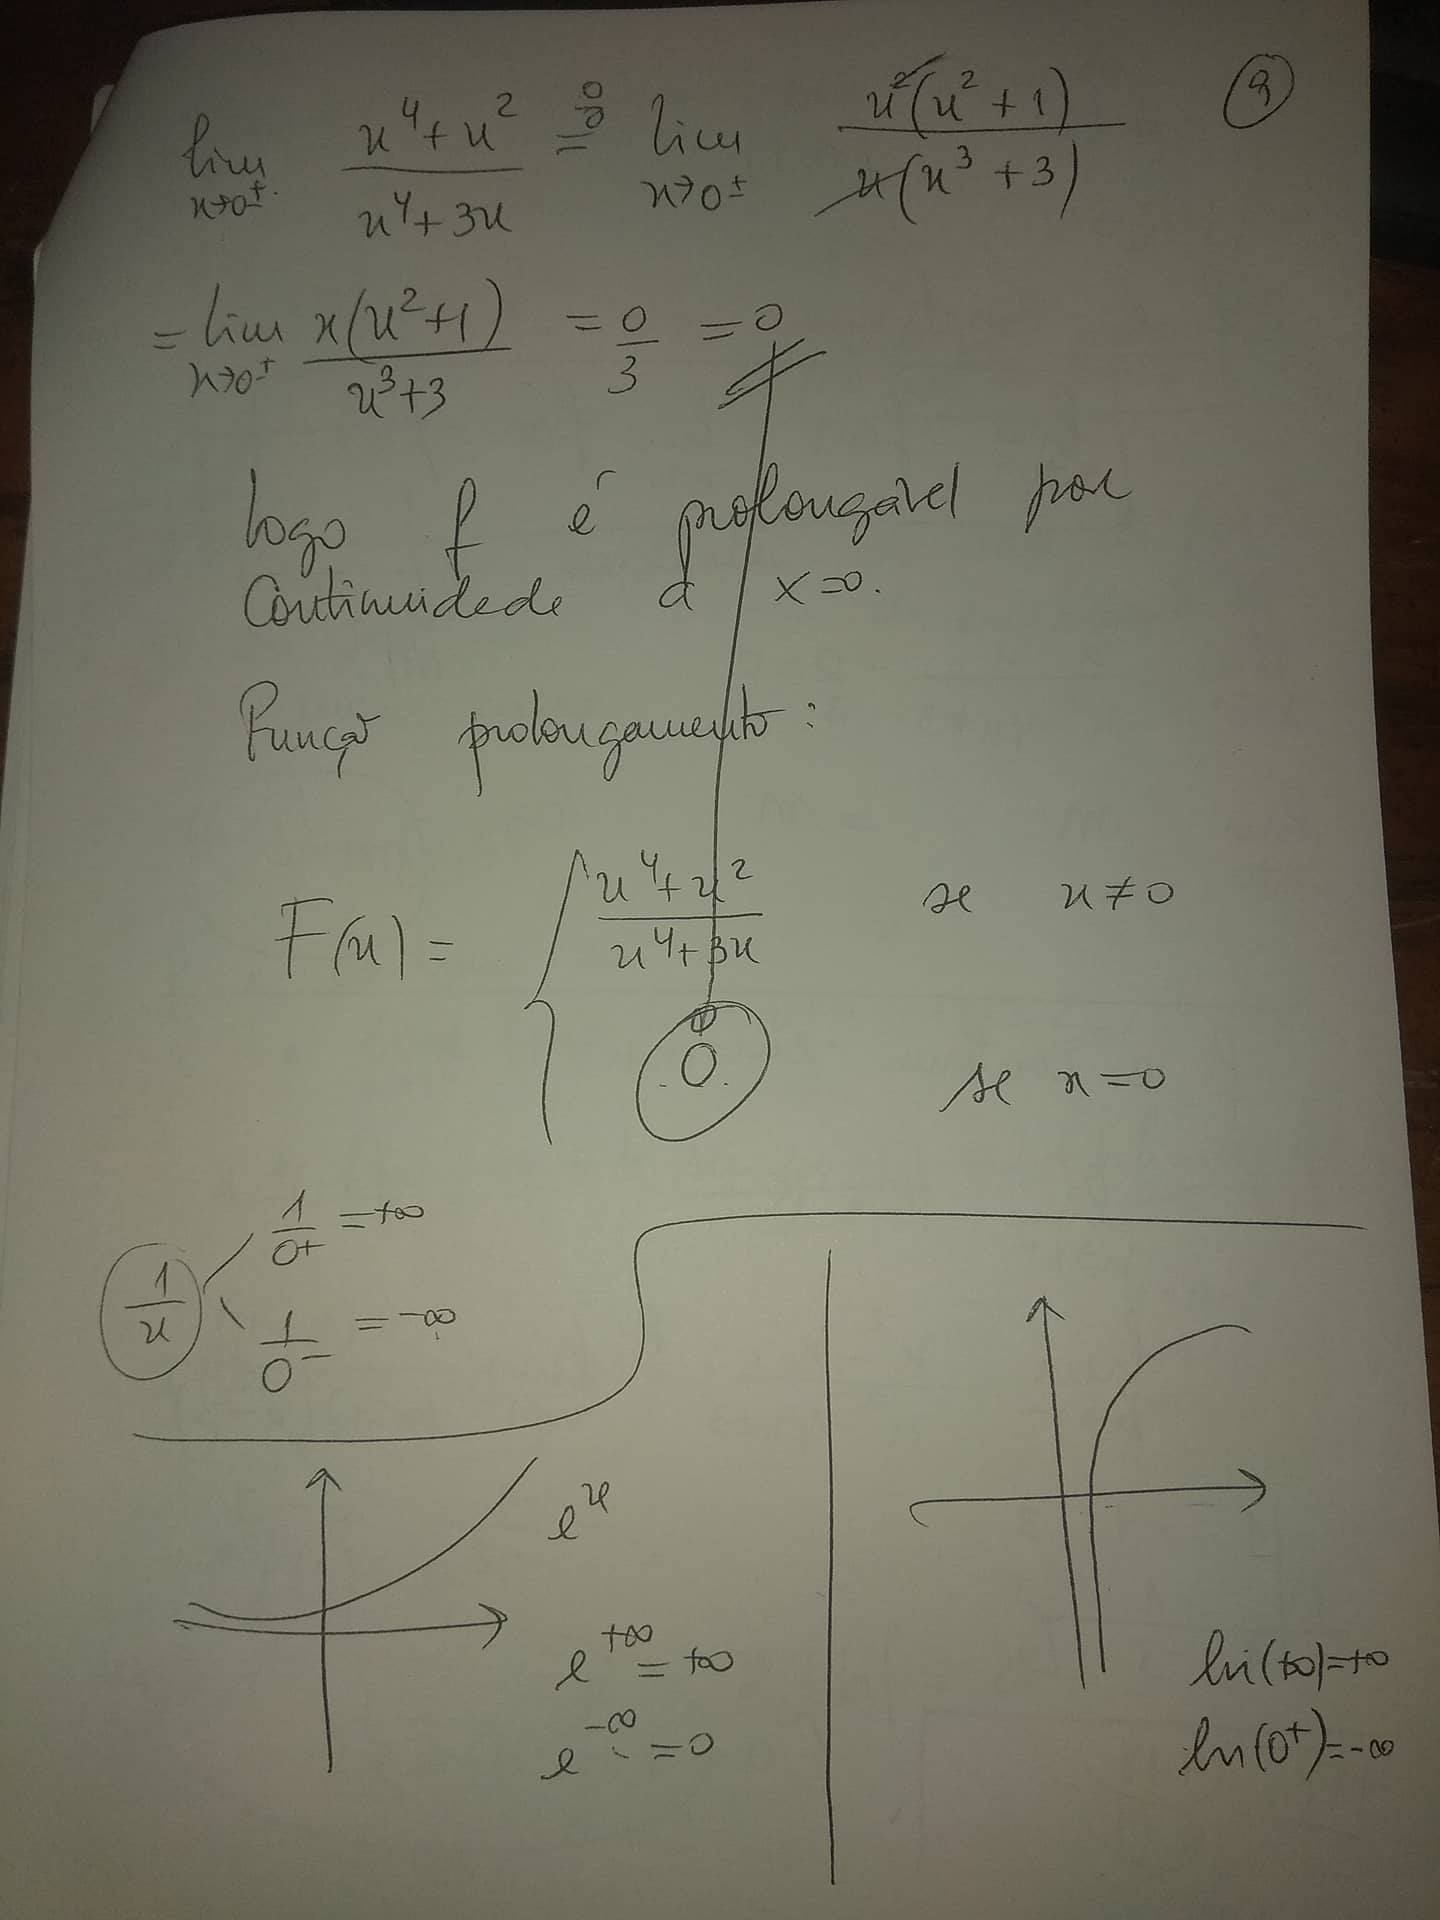 lim x→0± x⁴+x²/x⁴+3x =0/0 lim x→0± x²(x²+1)/x(x³+3) 9
= lim x→0± x(x²+1)/x³+3 = 0/3 = 0
Logo f é prolongável por
Continuidade a x=0.
Função prolongamento:
F(x) = { x⁴+x²/x⁴+3x se x≠0
0 se x=0
1/x 1/0+ = +∞
1/0− = −∞
eˣ
e^+∞ = +∞
e^−∞ = 0
ln(+∞)=+∞
ln(0+)=−∞